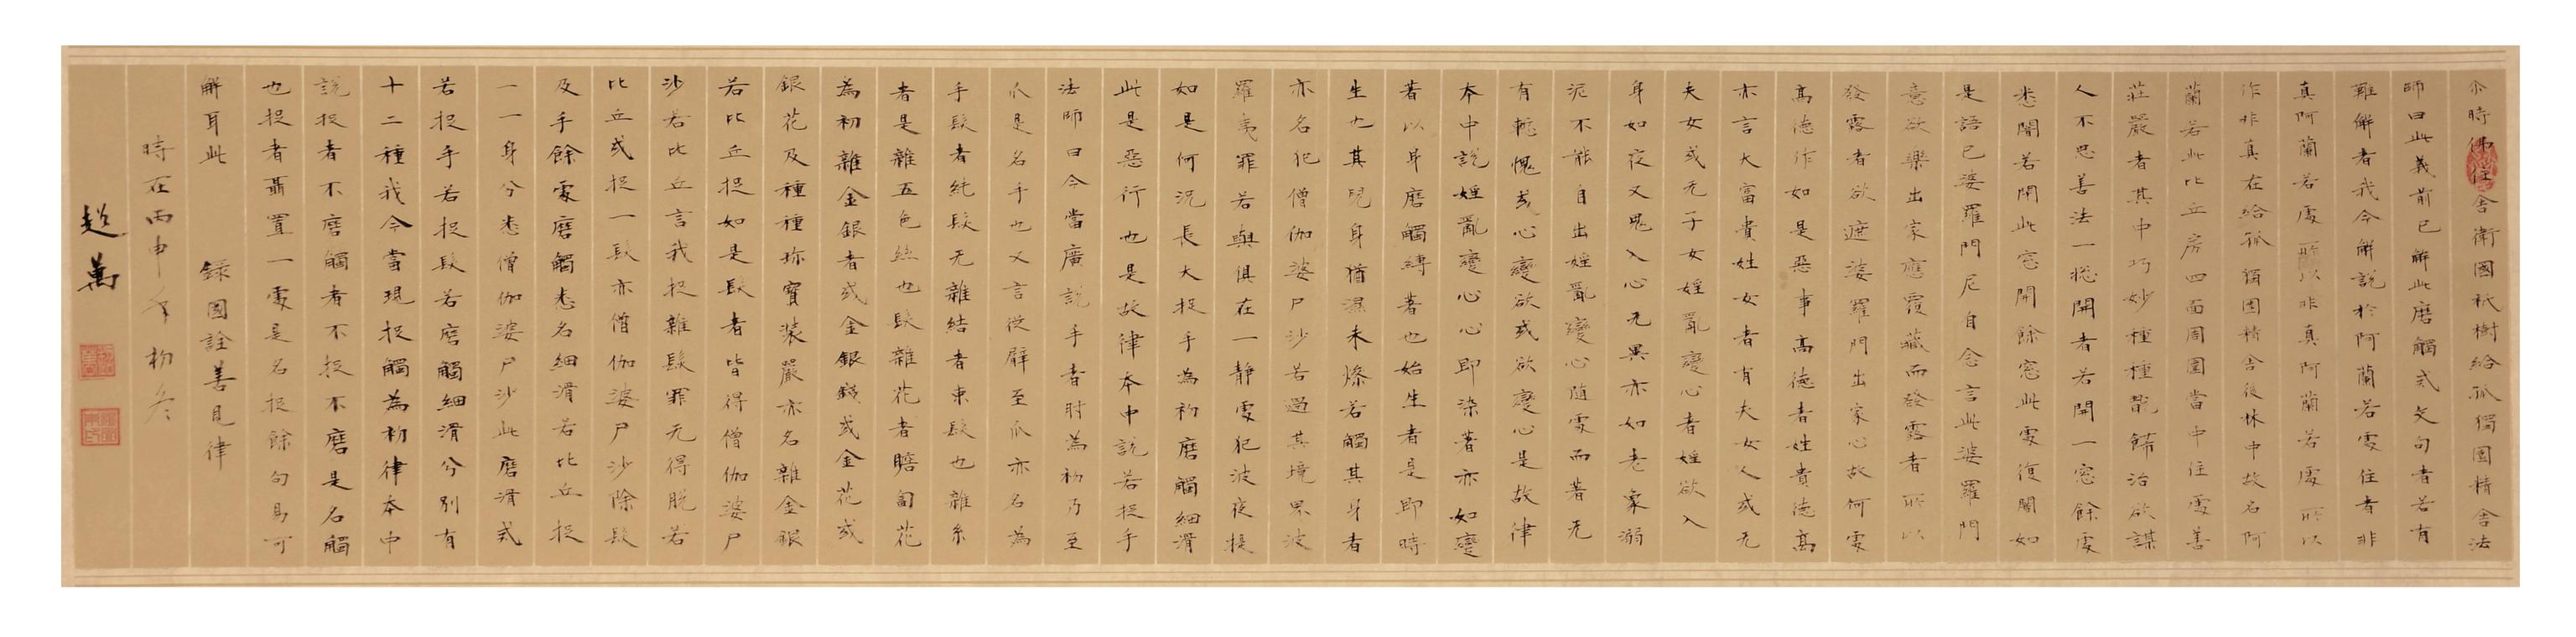 尒時佛住舍衛國祇樹給孤獨園精舍法
師曰此義前已解此磨觸戒文句者若有
難解者我今解說於阿蘭若處住者非
真阿蘭若處所以非真阿蘭若處所以
作非真在給孤獨園精舍後林中故名阿
蘭若此比丘房四面周圍當中住處善
莊嚴者其中巧妙種種餝治欲謀
人不思善法一捴開者若開一窓餘處
悉闇若閇此窓開餘窓此處復闇如
是語已婆羅門尼自念言此婆羅門
意欲樂出家應覆藏而發露者所以
發露者欲遮婆羅門出家心故何處
高德作如是惡事高德者姓貴德高
亦言大富貴姓女者有夫女人或无
夫女或无子女婬亂變心者婬欲入
身如夜叉鬼入心无異亦如老象溺
泥不能自出婬亂變心隨處而著无
有慚愧或心變欲或欲變心是故律
本中說婬亂變心心即染著亦如變
著以身磨觸縛著也始生者是即時
生也其兒身猶濕未燥若觸其身者
亦名犯僧伽婆尸沙若過其境界波
羅夷罪若與俱在一靜處犯波夜提
如是何況長大捉手為初磨觸細滑
此是惡行也是故律本中說若捉手
法師曰今當廣說手者肘為初乃至
爪是名手也又言從臂至爪亦名為
手髮者純髮无雜結者束髮也雜糸
者是雜五色絲也髮雜花者瞻匐花
為初雜金銀者或金銀錢或金花或
銀花及種種珎寶裝嚴亦名雜金銀
若比丘捉如是髮者皆得僧伽婆尸
沙若比丘言我捉雜髮罪无得脫若
比丘或捉一髮亦僧伽婆尸沙除髮
及手餘處磨觸悉名細滑若比丘捉
一一身分悉僧伽婆尸沙此磨滑戒
若捉手若捉髮若磨觸細滑分別有
十二種我今當現捉觸為初律本中
說捉者不磨觸者不捉不磨是名觸
也捉者羂置一處是名捉餘句易可
解耳此 録國詮善見律
時在丙申年初冬
趙萬